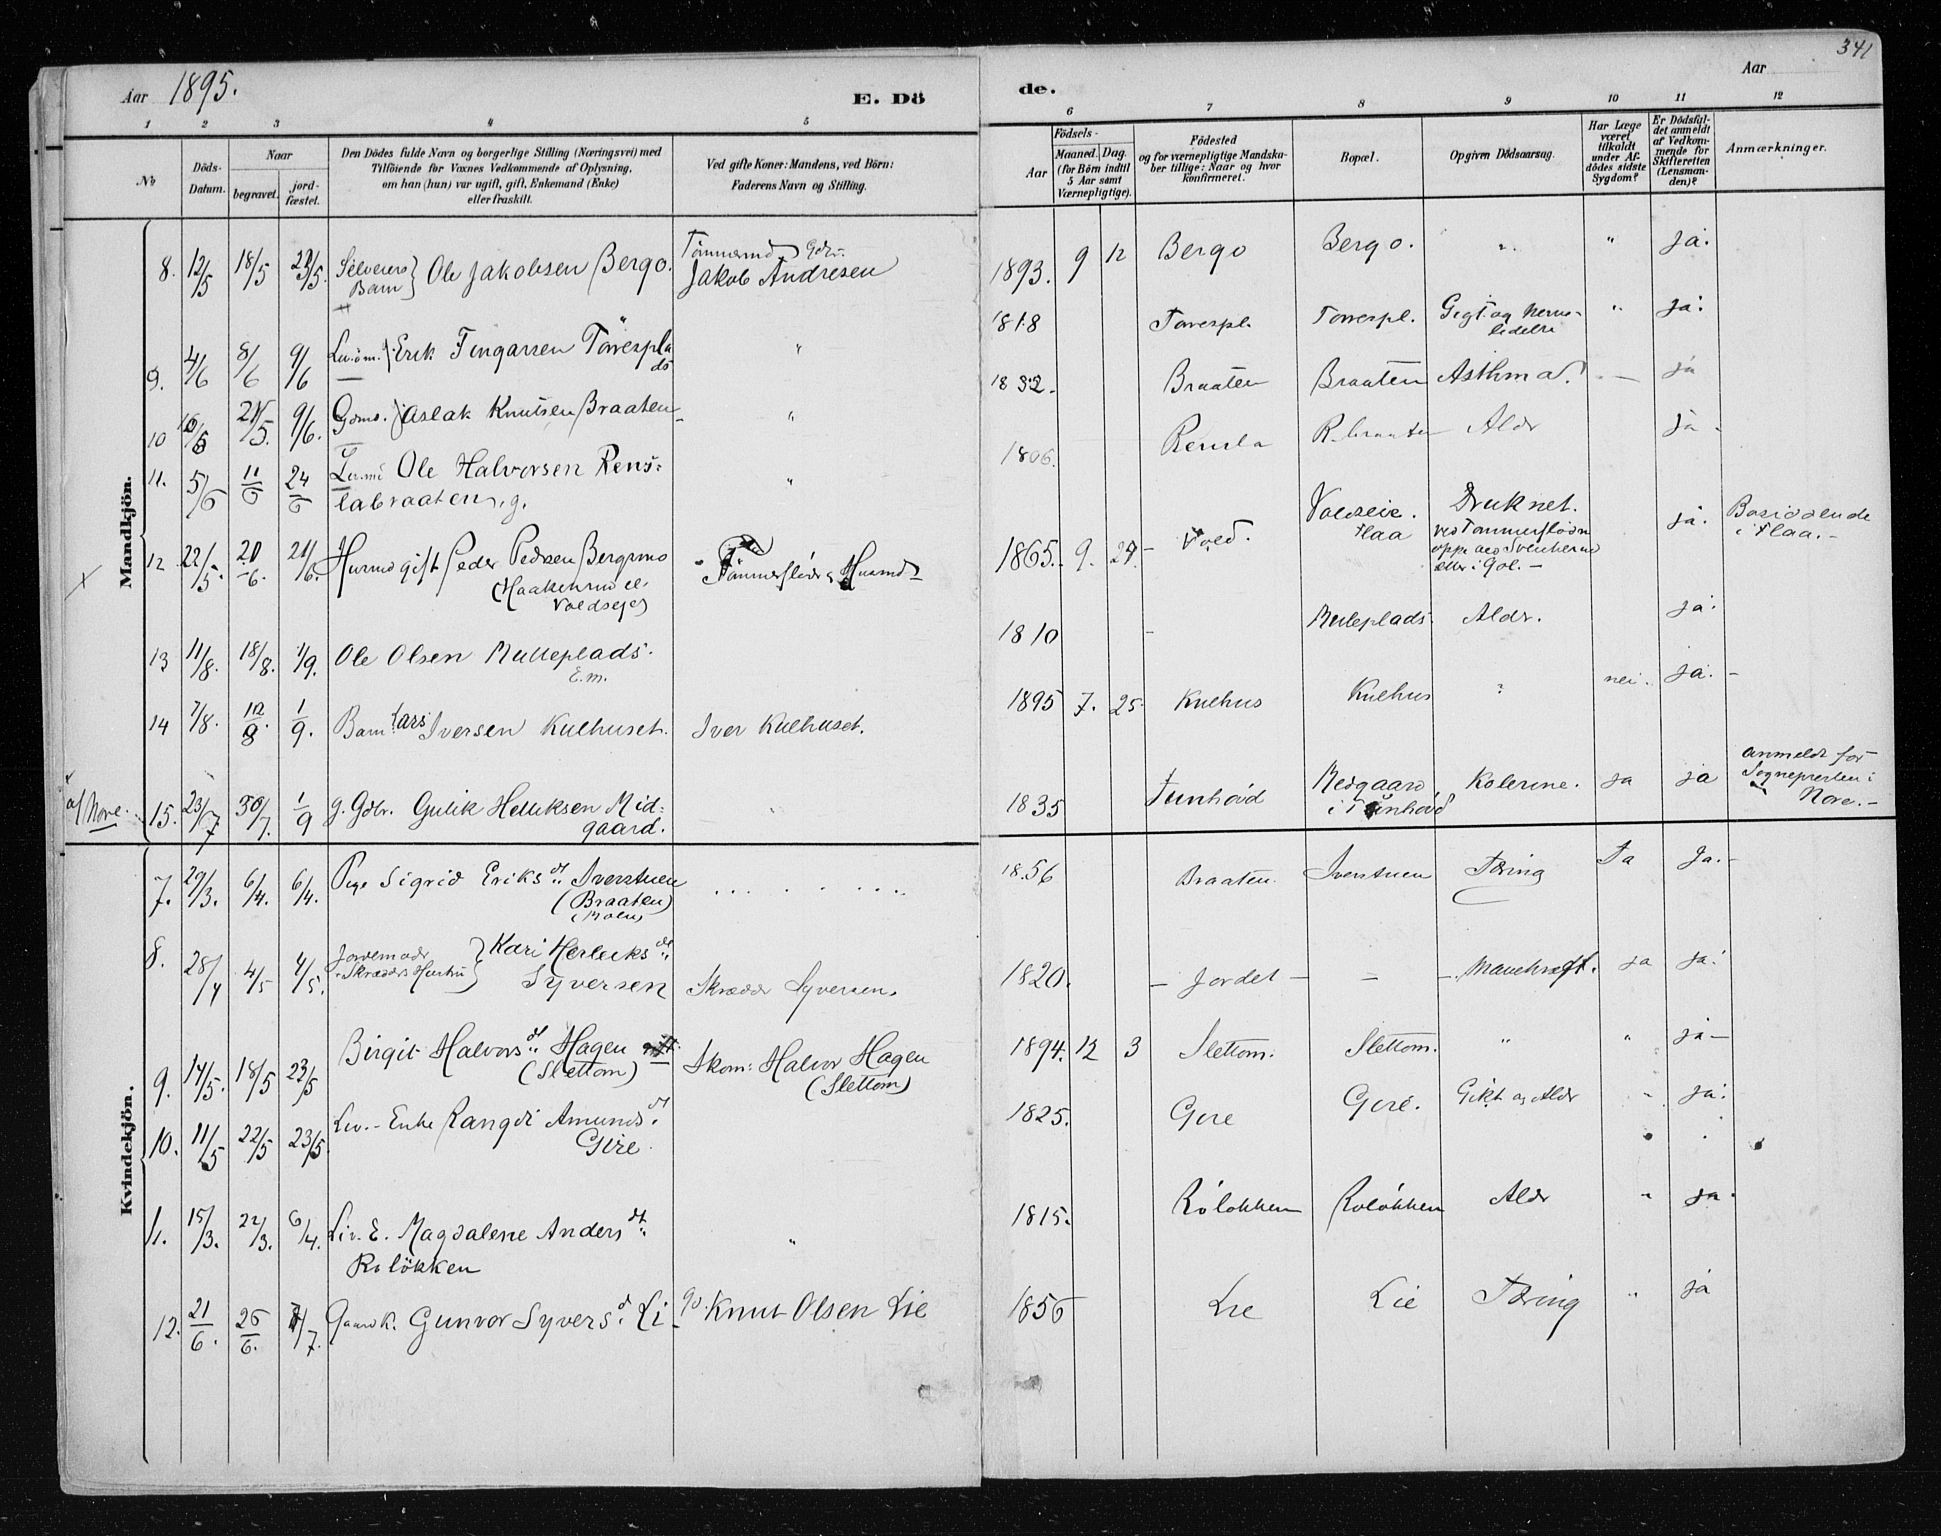 341
Aar 1895. E. Dö de. Aar
1 2 3 4 5 6 7 8 9 10 11 12
No
Döds-Datum.
Naar
begravet.
jord-fæstet.
Den Dödes fulde Navn og borgerlige Stilling (Næringsvei) med
Tilföiende for Voxnes Vedkommende af Oplysning,
om han (hun) var ugift, gift, Enkemand (Enke)
eller fraskilt.
Ved gifte Koner: Mandens, ved Börn:
Faderens Navn og Stilling.
Aar
Födsels-
Maaned. Dag.
(for Börn indtil
5 Aar samt
Værnepligtige).
Födested
og for værnepligtige Mandska-
ber tillige: Naar og hvor
konfirmeret.
Bopæl.
Opgiven Dödsaarsag.
Har Læge
været
tilkaldt
under Af-
dödes sidste
Sygdom?
Er Dödsfal-
det anmeldt
af Vedkom-
mende for
Skifteretten
(Lensman-
den)?
Anmærkninger.
Mandkjön.
8. 12/5 18/5 23/5. Selveiers Barn } Ole Jakobsen Bergo. Tömmermd. Gdbr. Jakob Andresen 1893. 9 12 Bergo Bergo. " " ja.
9. 4/6 8/6 9/6 Erik Fingarsen Torrespl ds " 1818 Torrespl. Torrespl. Gigt og Nerve- lidelse " ja.
10 21/5. 9/6. Gdms. Aslak Knutsen Braaten " 1832. Braaten Braaten Asthma. — ja
11. 5/6 11/6 24/6 Ole Halvorsen Rens-
labraaten. g. " 1806. Rensla R.braaten Aldr ja.
12 22/5. 20/6. 21/6. Husmd gift Peder Pedersen Bergsmo
(Haakenrud el.
Voldseje) Tömmerflöder, Husmd 1865. 9. 27 Vold. Voldseie. Flaa Druknet. ved Tømmerflødn ja. Bosiddende
i Flaa.
13 11/8. 18/8. 1/9. Ole Olsen Mulleplads.
E.m. 1810 - Mulleplads. Aldr. ja.
14 7/8. 12/8. 1/9. Barn Lars Iversen Kulhuset. Iver Kulhuset. 1895 7. 25 Kulhus Kulhus " nei. ja.
af Nore. 15. 23/7 30/7. 1/9 g. Gdbr. Gulik Helliksen Mid-
gaard. 1835 Tunhövd Medgaard
i Tunhövd Kolerine. ja ja anmeldt for
Sognepresten i
Nore.
Kvindekjön.
7. 29/3. 6/4. 6/4. Pige Sigrid Eriks dt. Iverstuen
(Braaten) 1856 Braaten. Iverstuen Tæring Ja Ja.
8. 28/4 4/5 4/5. Jordemodr Skræders Hustru } Kari Herleiks dt.
Syversen Skrædder Syversen. 1820. - Jordet - - Mavekræft. ja ja.
9. 14/5. 18/5 23/5 Birgit Halvors dt. Hagen
(Slettom) Skom: Halvor Hagen
(Slettom) 1894. 12 3 Slettom. Slettom. " " ja
10. 11/5 22/5 23/5. Lev.- Enke Rangdi Amunds dt.
Gire. 1825. Gire Gire. Gikt og Aldr " ja.
11. 15/3. 22/3. 6/4. Liv. E. Magdalene Anders dt.
Rolökken " 1815. Rolökken Rolökken Aldr " ja.
12. 21/6. 26/6. 7/7. Gaardk. Gunvor Syvers d. Li Knut Olsen Lie 1856 Lie Lie Tæring " ja